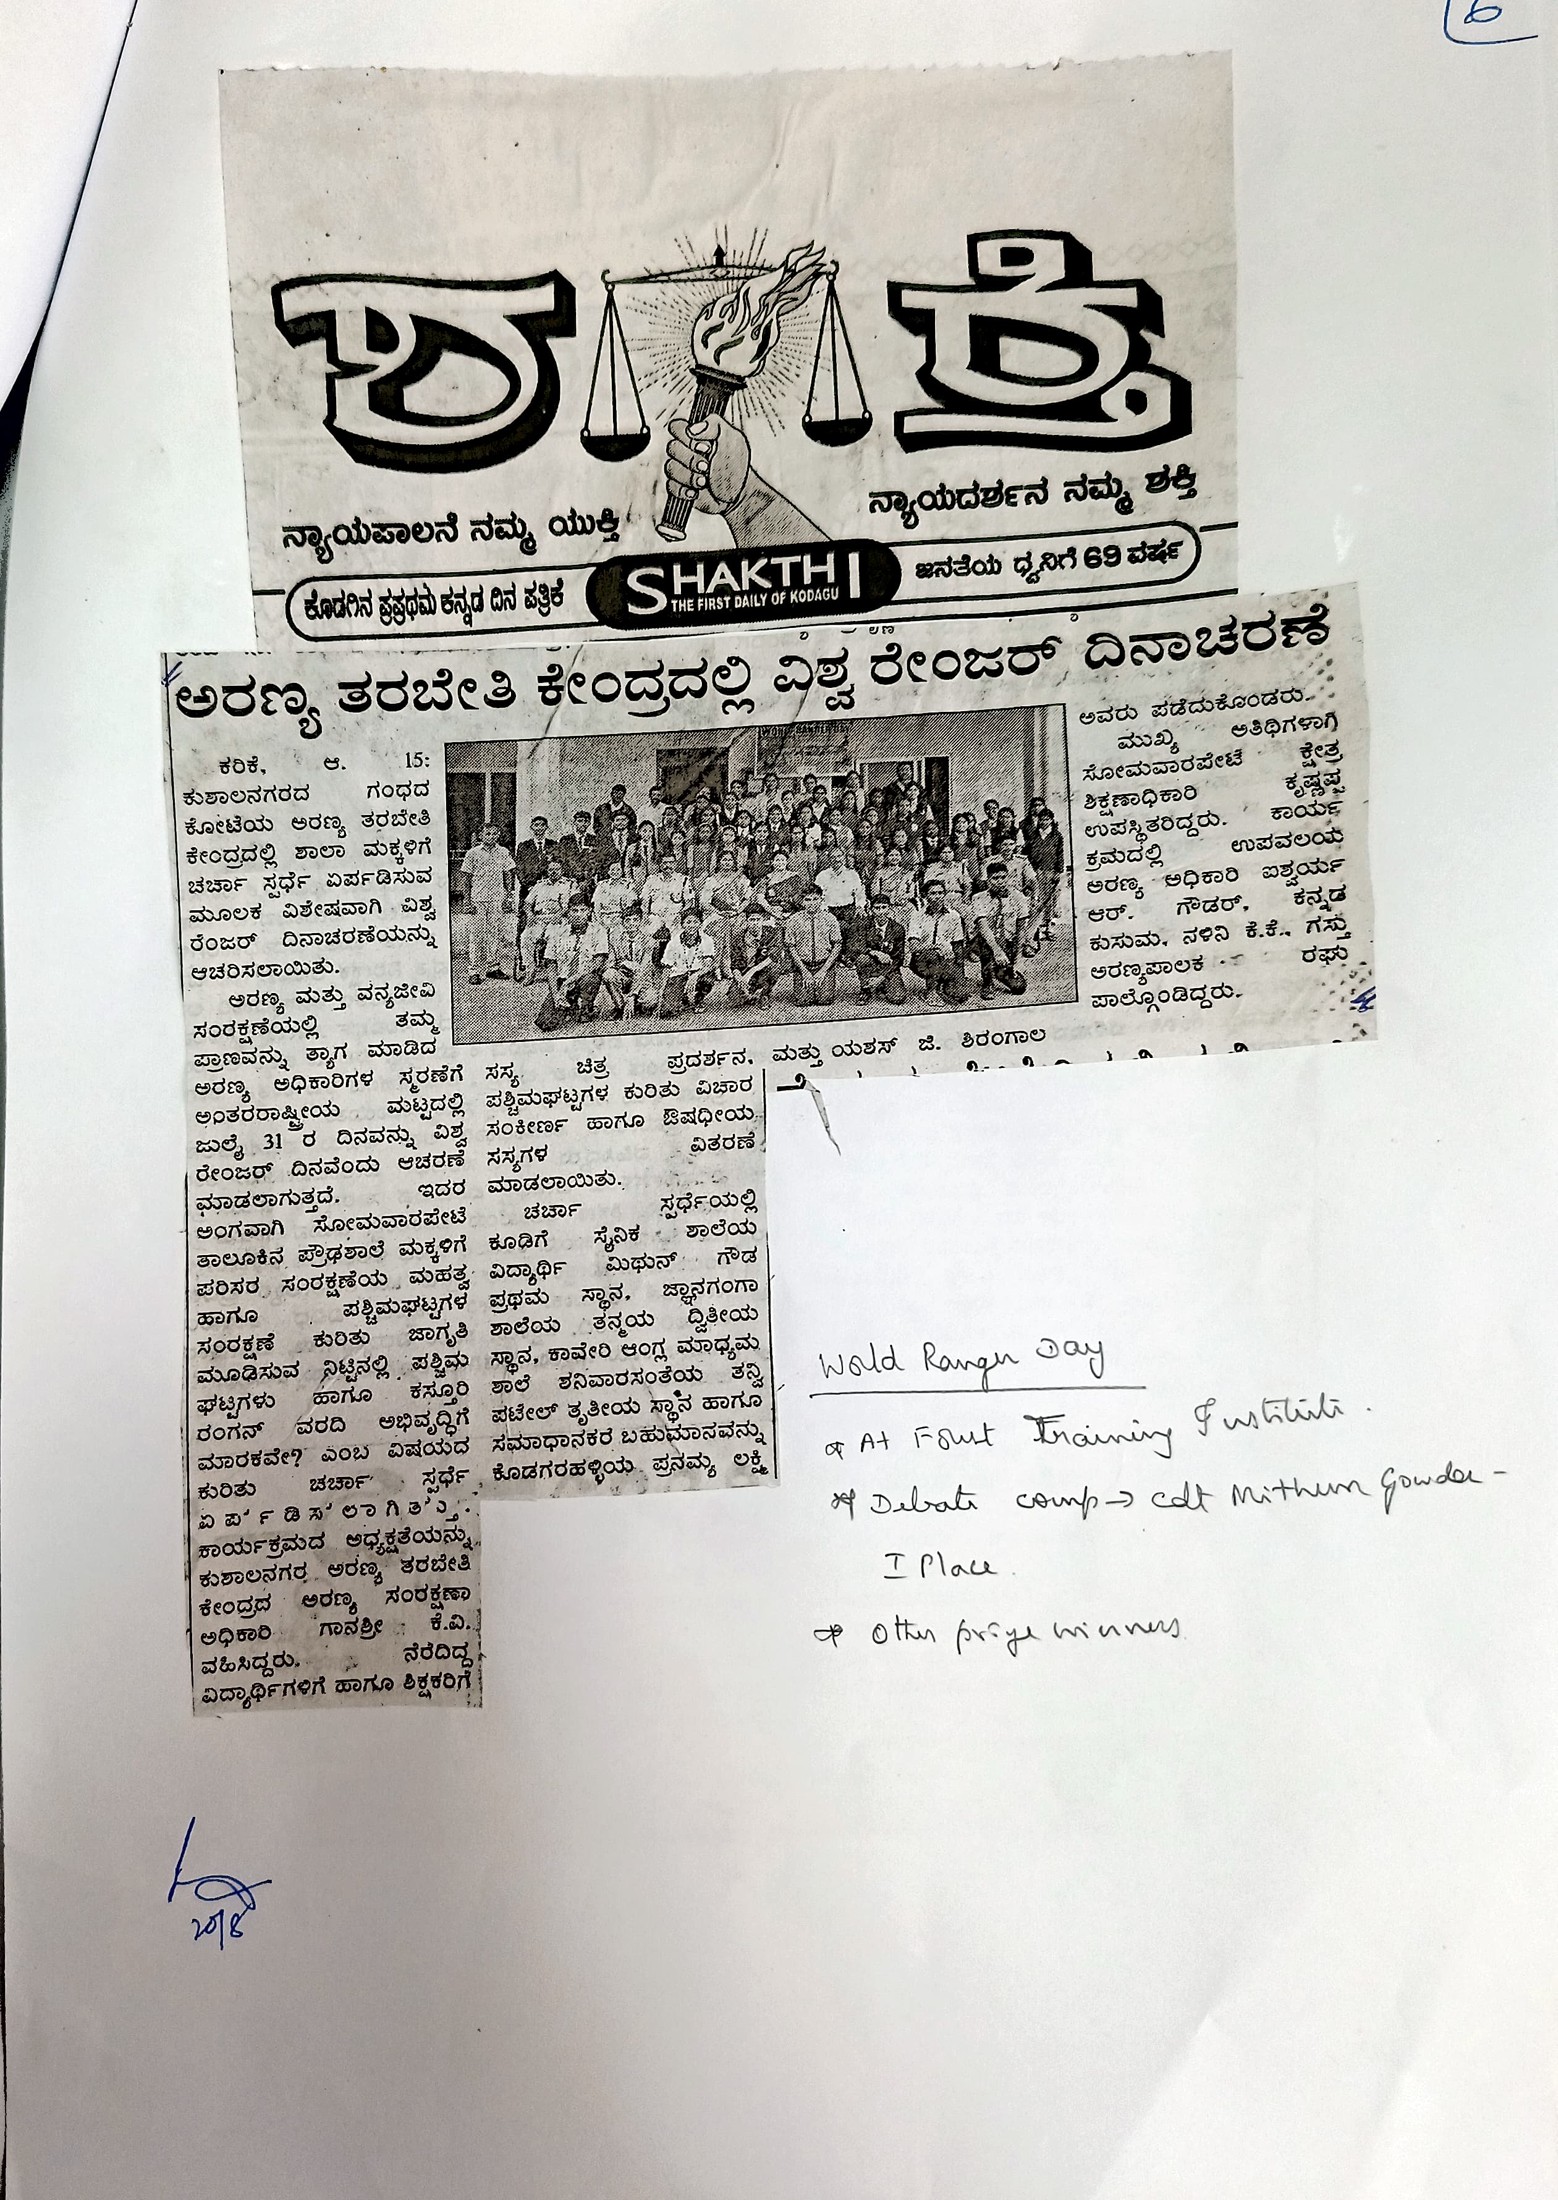 6
ಶಕ್ತಿ
ನ್ಯಾಯಪಾಲನೆ ನಮ್ಮ ಯುಕ್ತಿ
ನ್ಯಾಯದರ್ಶನ ನಮ್ಮ ಶಕ್ತಿ
ಕೊಡಗಿನ ಪ್ರಪ್ರಥಮ ಕನ್ನಡ ದಿನ ಪತ್ರಿಕೆ
SHAKTHI
THE FIRST DAILY OF KODAGU
ಜನತೆಯ ಧ್ವನಿಗೆ 69 ವರ್ಷ
ಅರಣ್ಯ ತರಬೇತಿ ಕೇಂದ್ರದಲ್ಲಿ ವಿಶ್ವ ರೇಂಜರ್ ದಿನಾಚರಣೆ
ಕರಿಕೆ, ಆ. 15:
ಕುಶಾಲನಗರದ ಗಂಧದ
ಕೋಟೆಯ ಅರಣ್ಯ ತರಬೇತಿ
ಕೇಂದ್ರದಲ್ಲಿ ಶಾಲಾ ಮಕ್ಕಳಿಗೆ
ಚರ್ಚಾ ಸ್ಪರ್ಧೆ ಏರ್ಪಡಿಸುವ
ಮೂಲಕ ವಿಶೇಷವಾಗಿ ವಿಶ್ವ
ರೆಂಜರ್ ದಿನಾಚರಣೆಯನ್ನು
ಆಚರಿಸಲಾಯಿತು.
ಅರಣ್ಯ ಮತ್ತು ವನ್ಯಜೀವಿ
ಸಂರಕ್ಷಣೆಯಲ್ಲಿ ತಮ್ಮ
ಪ್ರಾಣವನ್ನು ತ್ಯಾಗ ಮಾಡಿದ
ಅರಣ್ಯ ಅಧಿಕಾರಿಗಳ ಸ್ಮರಣೆಗೆ
ಅಂತರರಾಷ್ಟ್ರೀಯ ಮಟ್ಟದಲ್ಲಿ
ಜುಲೈ 31 ರ ದಿನವನ್ನು ವಿಶ್ವ
ರೇಂಜರ್ ದಿನವೆಂದು ಆಚರಣೆ
ಮಾಡಲಾಗುತ್ತದೆ. ಇದರ
ಅಂಗವಾಗಿ ಸೋಮವಾರಪೇಟೆ
ತಾಲೂಕಿನ ಪ್ರೌಢಶಾಲೆ ಮಕ್ಕಳಿಗೆ
ಪರಿಸರ ಸಂರಕ್ಷಣೆಯ ಮಹತ್ವ
ಹಾಗೂ ಪಶ್ಚಿಮಘಟ್ಟಗಳ
ಸಂರಕ್ಷಣೆ ಕುರಿತು ಜಾಗೃತಿ
ಮೂಡಿಸುವ ನಿಟ್ಟಿನಲ್ಲಿ ಪಶ್ಚಿಮ
ಘಟ್ಟಗಳು ಹಾಗೂ ಕಸ್ತೂರಿ
ರಂಗನ್ ವರದಿ ಅಭಿವೃದ್ಧಿಗೆ
ಮಾರಕವೇ? ಎಂಬ ವಿಷಯದ
ಕುರಿತು ಚರ್ಚಾ ಸ್ಪರ್ಧೆ
ಏರ್ಪಡಿಸಲಾಗಿತ್ತು.
ಕಾರ್ಯಕ್ರಮದ ಅಧ್ಯಕ್ಷತೆಯನ್ನು
ಕುಶಾಲನಗರ ಅರಣ್ಯ ತರಬೇತಿ
ಕೇಂದ್ರದ ಅರಣ್ಯ ಸಂರಕ್ಷಣಾ
ಅಧಿಕಾರಿ ಗಾನಶ್ರೀ ಕೆ.ವಿ.
ವಹಿಸಿದ್ದರು. ನೆರೆದಿದ್ದ
ವಿದ್ಯಾರ್ಥಿಗಳಿಗೆ ಹಾಗೂ ಶಿಕ್ಷಕರಿಗೆ
ಸಸ್ಯ ಚಿತ್ರ ಪ್ರದರ್ಶನ,
ಪಶ್ಚಿಮಘಟ್ಟಗಳ ಕುರಿತು ವಿಚಾರ
ಸಂಕೀರ್ಣ ಹಾಗೂ ಔಷಧೀಯ
ಸಸ್ಯಗಳ ವಿತರಣೆ
ಮಾಡಲಾಯಿತು.
ಚರ್ಚಾ ಸ್ಪರ್ಧೆಯಲ್ಲಿ
ಕೂಡಿಗೆ ಸೈನಿಕ ಶಾಲೆಯ
ವಿದ್ಯಾರ್ಥಿ ಮಿಥುನ್ ಗೌಡ
ಪ್ರಥಮ ಸ್ಥಾನ, ಜ್ಞಾನಗಂಗಾ
ಶಾಲೆಯ ತನ್ಮಯ ದ್ವಿತೀಯ
ಸ್ಥಾನ, ಕಾವೇರಿ ಆಂಗ್ಲ ಮಾಧ್ಯಮ
ಶಾಲೆ ಶನಿವಾರಸಂತೆಯ ತನ್ವಿ
ಪಟೇಲ್ ತೃತೀಯ ಸ್ಥಾನ ಹಾಗೂ
ಸಮಾಧಾನಕರ ಬಹುಮಾನವನ್ನು
ಕೊಡಗರಹಳ್ಳಿಯ ಪ್ರನಮ್ಯ ಲಕ್ಷ್ಮಿ
ಮತ್ತು ಯಶಸ್ ಜಿ. ಶಿರಂಗಾಲ
ಅವರು ಪಡೆದುಕೊಂಡರು.
ಮುಖ್ಯ ಅತಿಥಿಗಳಾಗಿ
ಸೋಮವಾರಪೇಟೆ ಕ್ಷೇತ್ರ
ಶಿಕ್ಷಣಾಧಿಕಾರಿ ಕೃಷ್ಣಪ್ಪ
ಉಪಸ್ಥಿತರಿದ್ದರು. ಕಾರ್ಯ
ಕ್ರಮದಲ್ಲಿ ಉಪವಲಯ
ಅರಣ್ಯ ಅಧಿಕಾರಿ ಐಶ್ವರ್ಯ
ಆರ್. ಗೌಡರ್, ಕನ್ನಡ
ಕುಸುಮ, ನಳಿನಿ ಕೆ.ಕೆ., ಗಸ್ತು
ಅರಣ್ಯಪಾಲಕ ರಘು
ಪಾಲ್ಗೊಂಡಿದ್ದರು.
World Ranger Day
* At Forest Training Institute.
* Debate comp → cdt Mithun Gowda -
I Place.
* Other prize winners
20/8